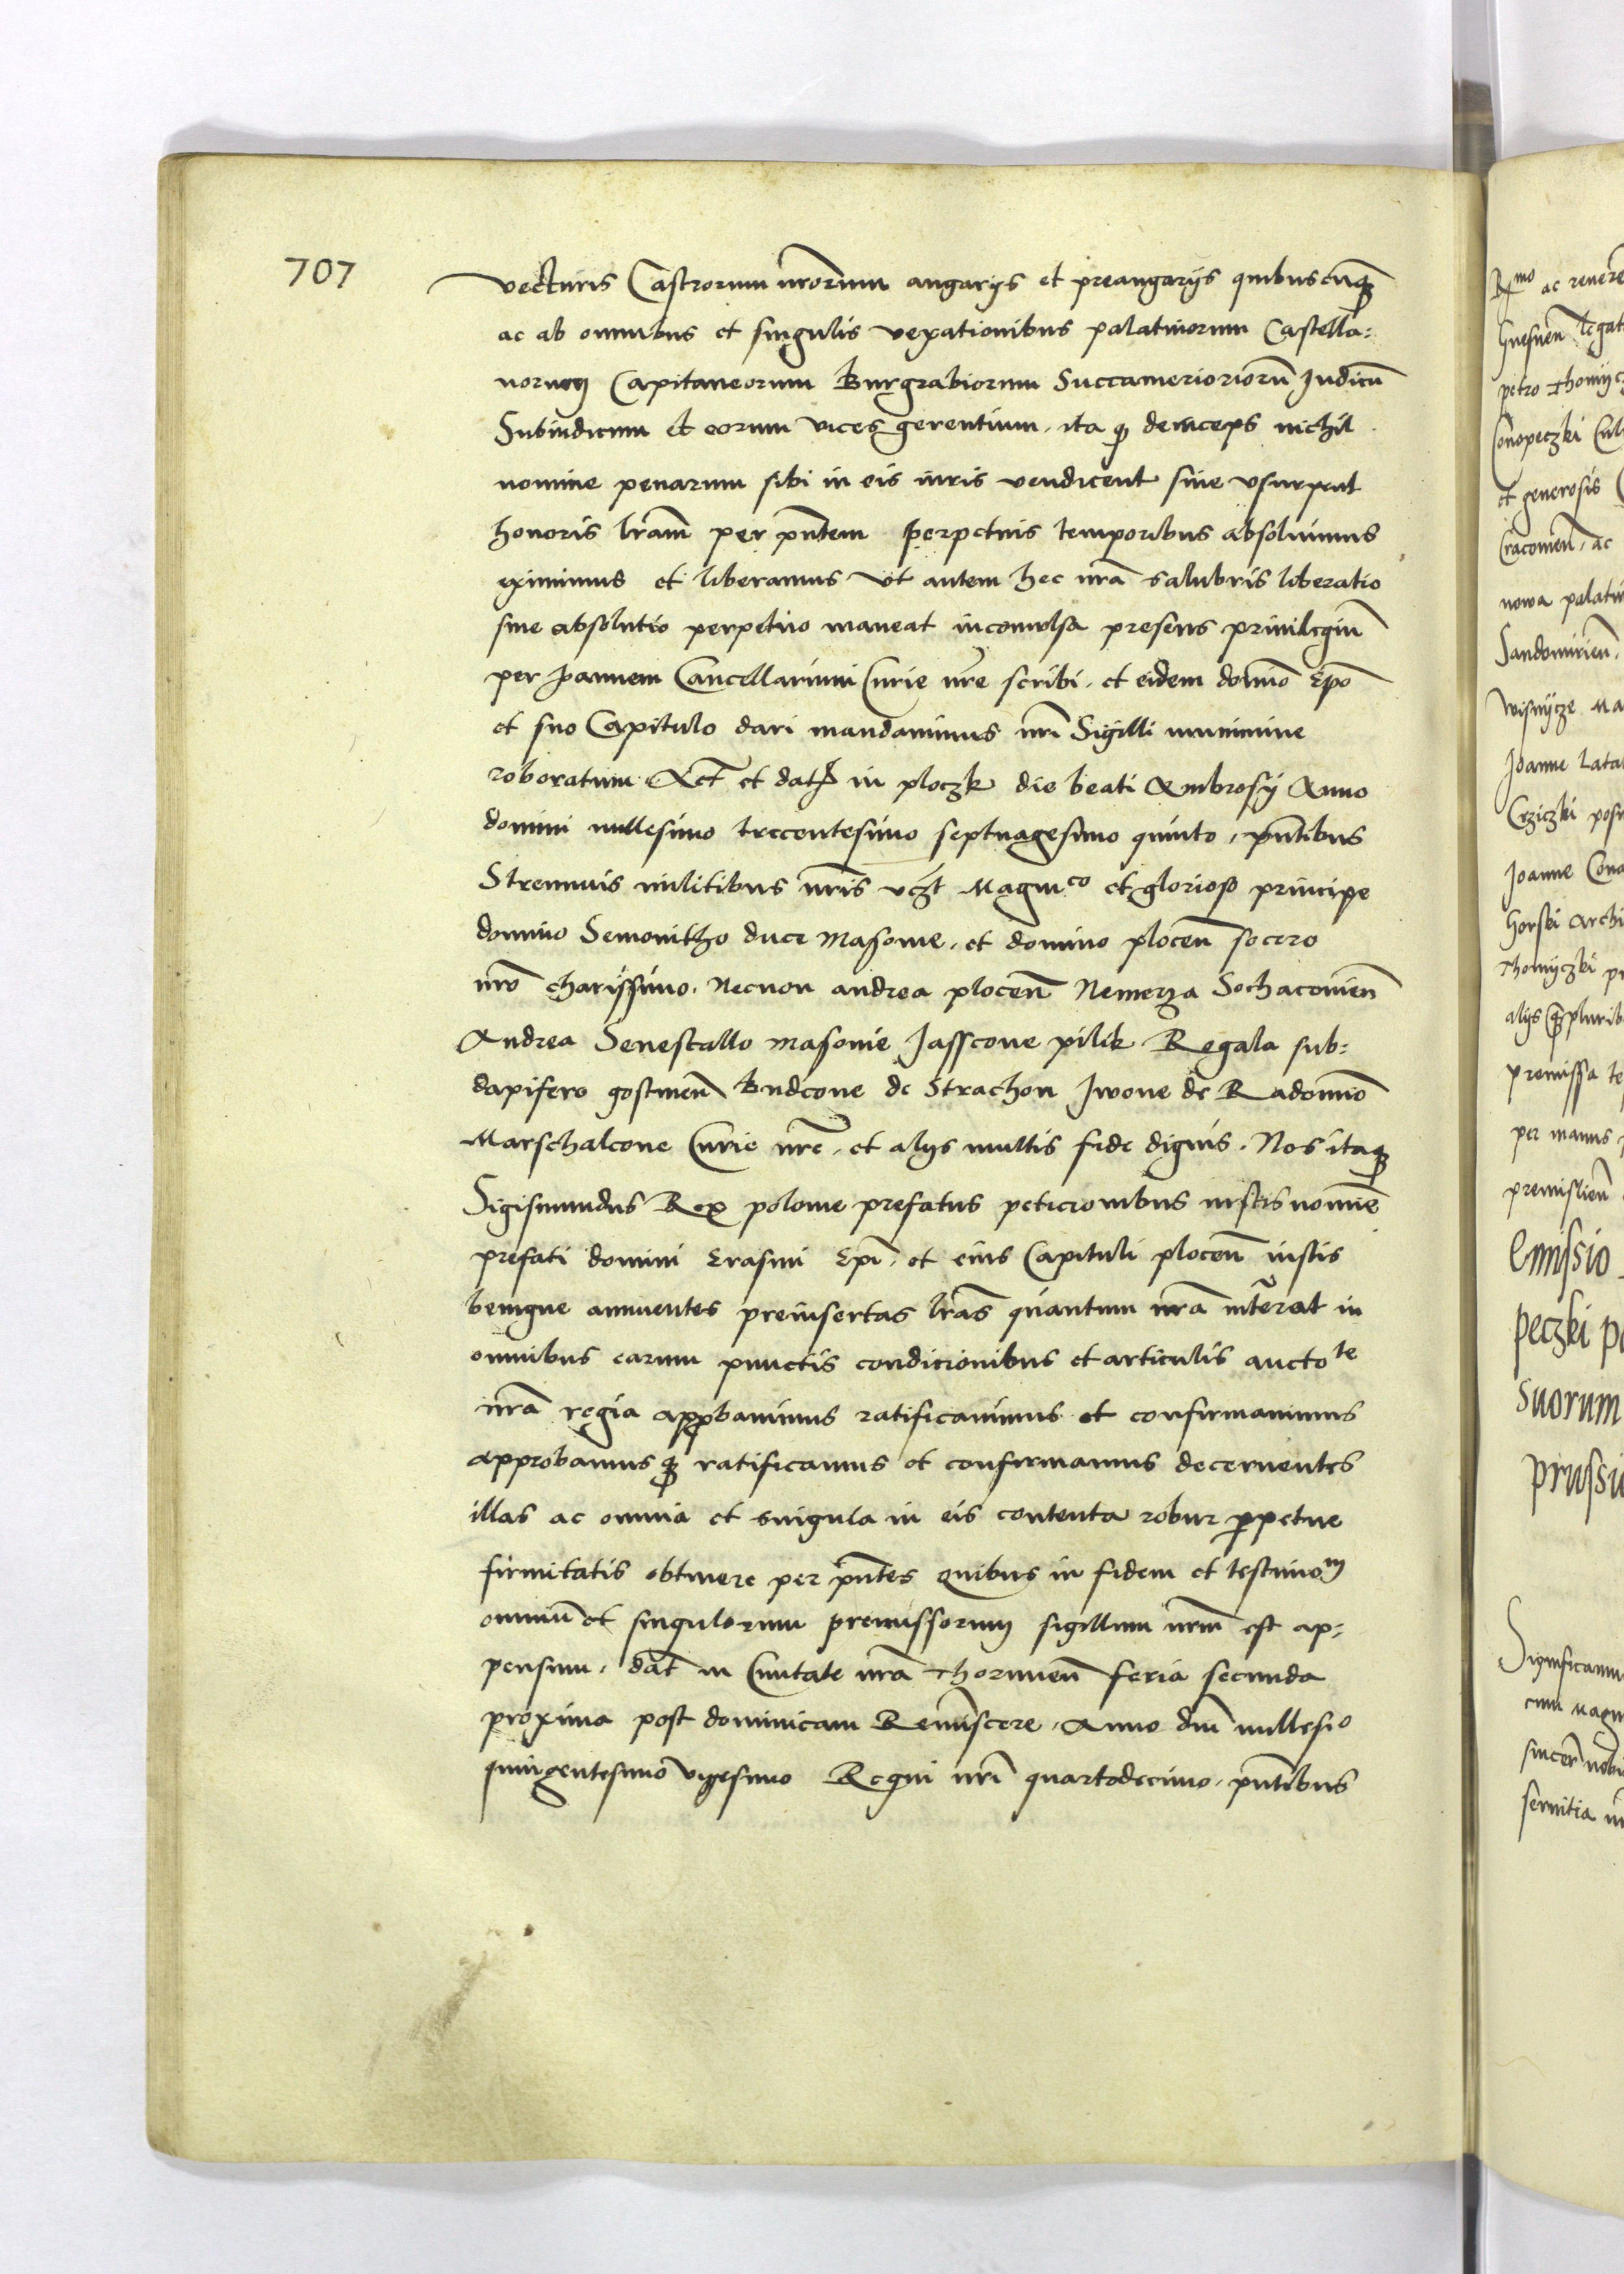 707
vecturis Castrorum nrorum angarijs et preangarijs quibuscūq;
ac ab omnibus et singulis vexationibus palatinorum Castella:
norum Capitaneorum Burgrabiorum Succamerioriorū Judicū
Subiudicum et eorum vices gerentium, ita q; deinceps nichil
nomine penarum sibi in eis iuris vendicent siue vsurpent
honoris lram per pntem perpetuis temporibus absoluimus
eximimus et liberamus Vt autem hec nra salubris liberatio
siue absolutio perpetuo maneat inconuulsa presens priuilegiū
per Joannem Cancellarium Curie nre scribi, et eidem domino Epo
et suo Capitulo dari mandauimus nri Sigilli munimine
roboratum Act et dat in ploczk die beati Ambrosij Anno
domini millesimo trecentesimo septuagesimo quinto, pntibus
Strennuis militibus nris vczt Magnico et glorioso principe
domino Semouitho duce Masouie, et domino plocen socero
nro charissimo. Necnon andrea plocen Nemerza Sochaconien
Andrea Senescallo masouie Jasscone pilik Regala sub:
dapifero gostinen Budcone de Strachon Jwone de Radomino
Marschalcone Curie nre, et alijs multis fide dignis. Nos itaq;
Sigismundus Rex polonie prefatus peticionibus iustis nomine
prefati domini Erasmi Epi, et eius Capituli plocen iustis
benigne annuentes preinsertas lras quantum nra interat in
omnibus earum punctis condicionibus et articulis aucto te
nra regia approbauimus ratificauimus et confirmauimus
approbamus q; ratificamus et confirmamus decernentes
illas ac omnia et singula in eis contenta robur perpetue
firmitatis obtinere per pntes Quibus in fidem et testimom
omniū et singulorum premissorum sigillum nrm est ap:
pensum, dat in Ciuitate nra Thorunien feria secunda
proxima post dominicam Reminiscere, Anno dni millesio
quingentesimo vigesimo Regni nri quartodecimo, pntibus
Rmo ac reuere
Gnesnen legat
petro Thomijc
Conopeczki Cul
et generosis
Cracouien, ac
nowa palati
Sandomirien,
Wisnijcze Ma
Joanne Lata
Crziczki pos
Joanne Cona
horski Archi
Thomijczki pr
alijs q; plurib
premissa te
per manus
premislien
Emissio
peczki p
suorum
prussi
Significamus
cum magn
sincer nobi
seruitia